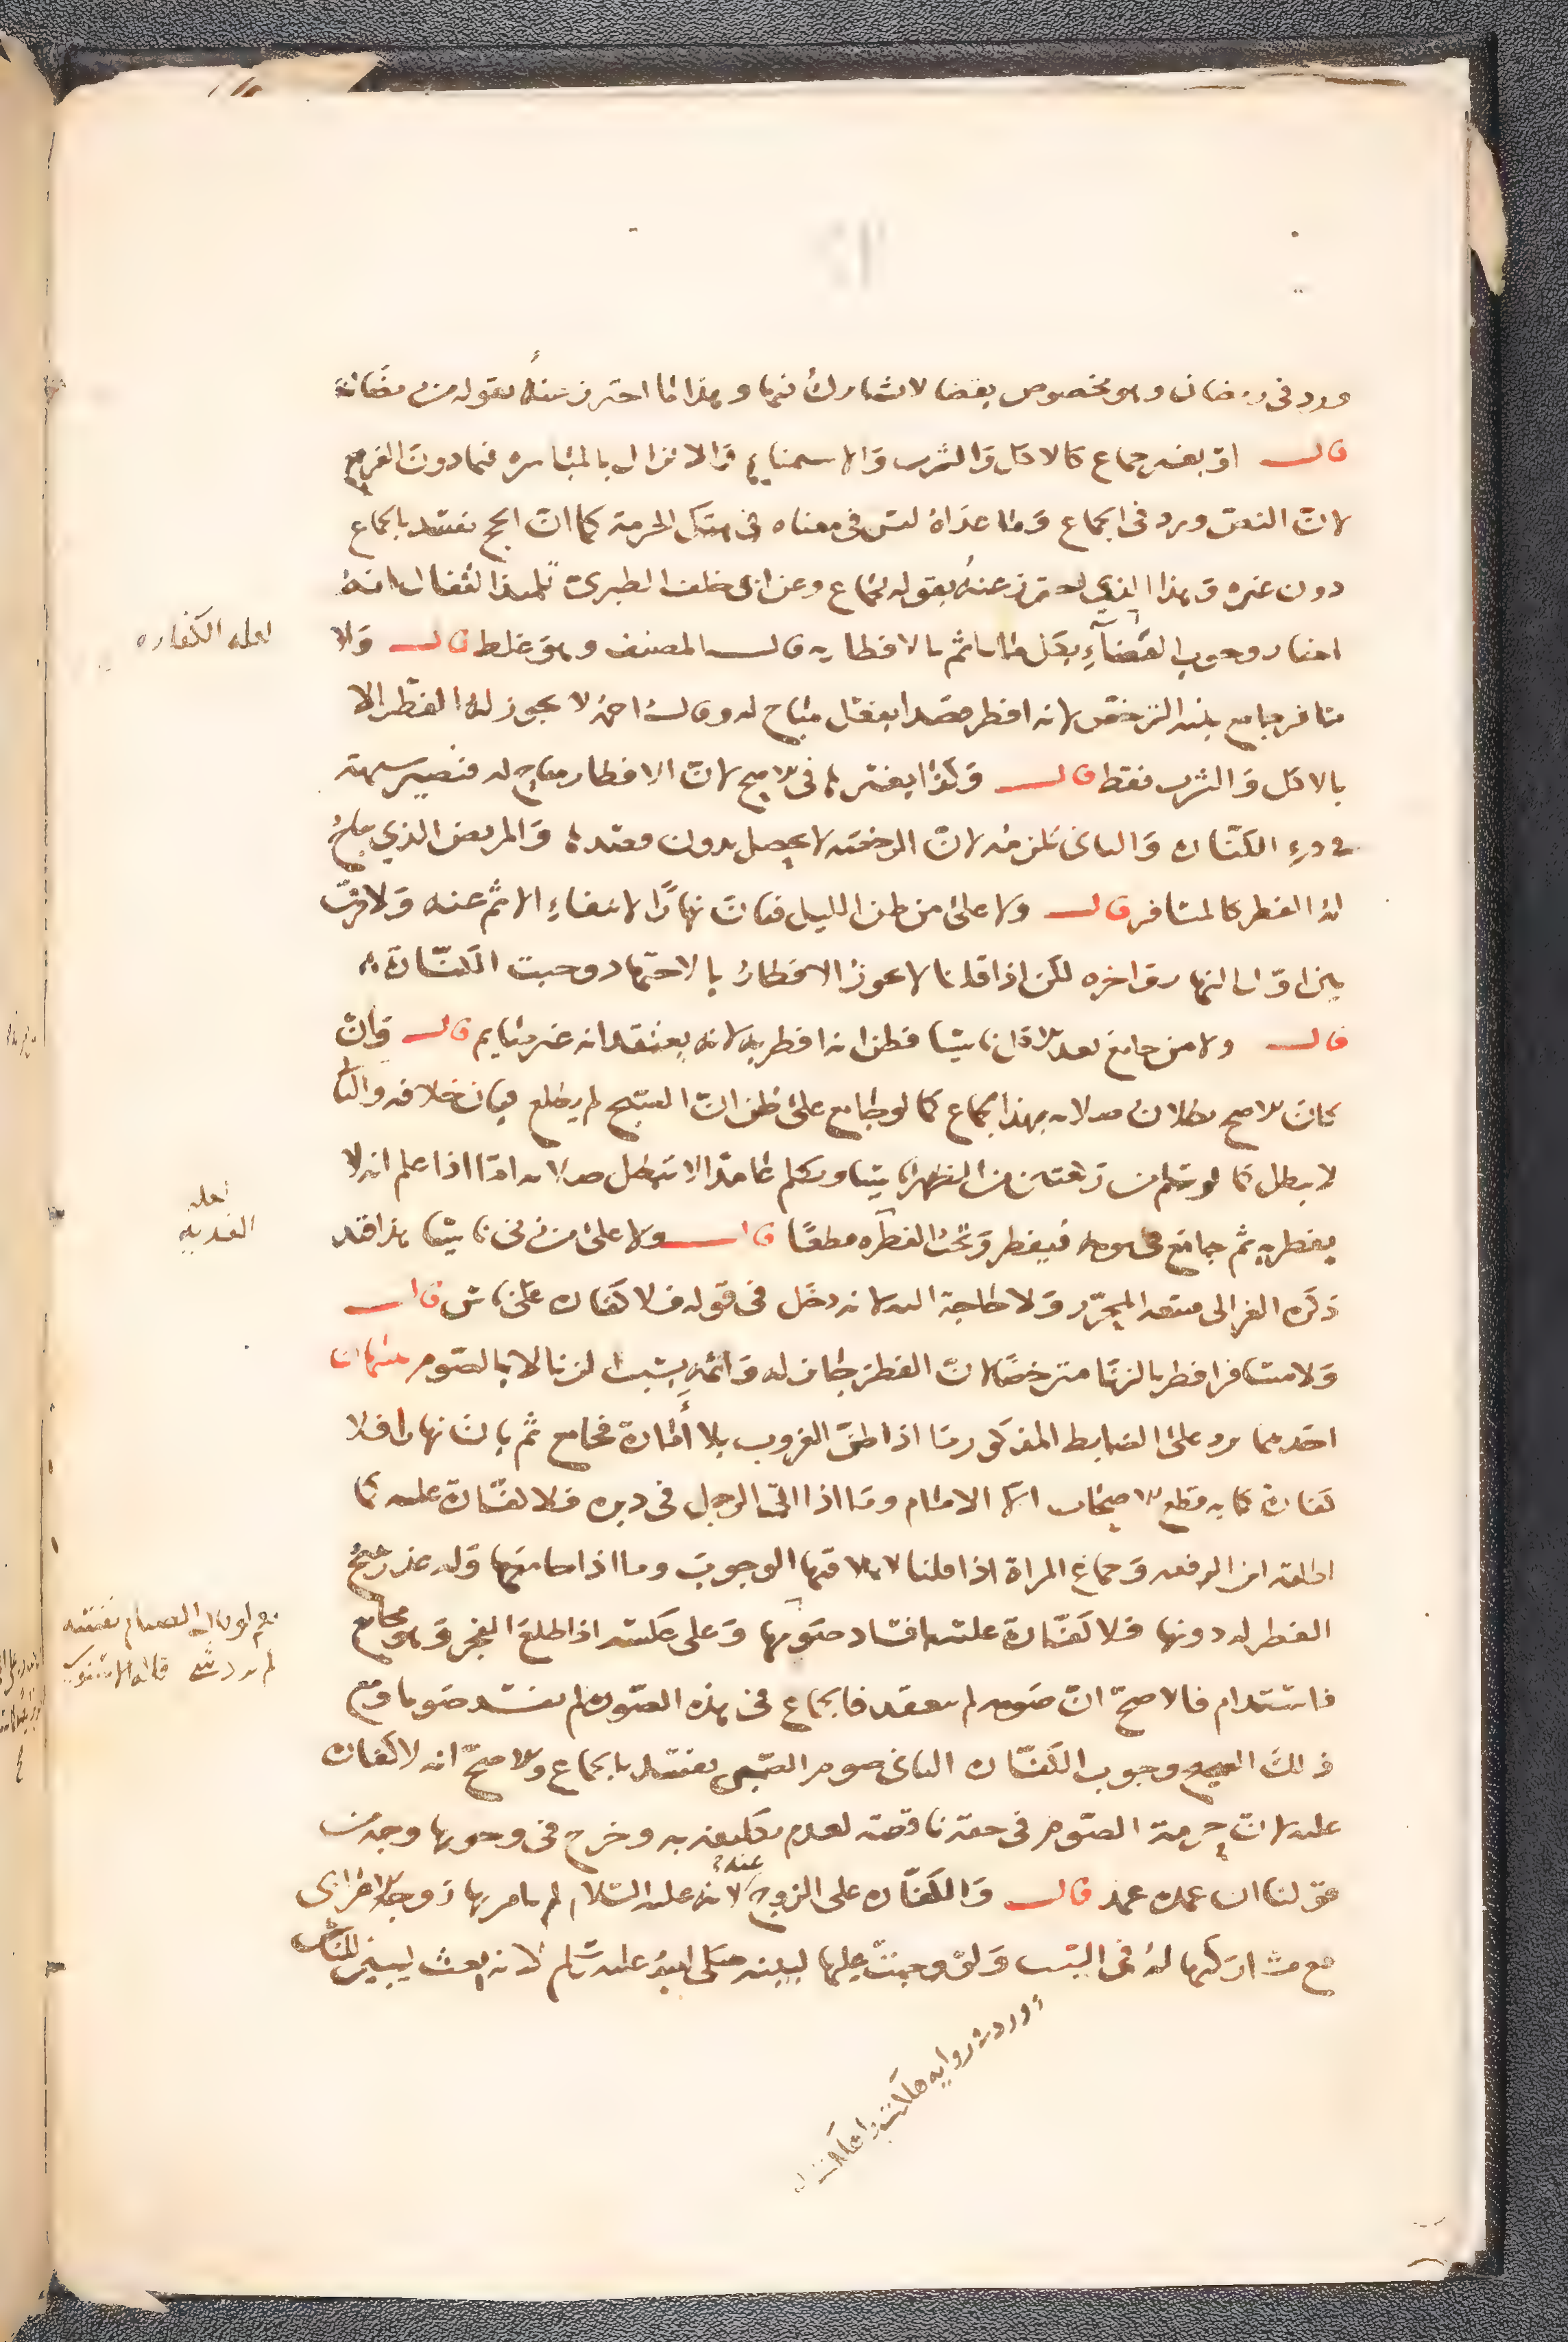 ورد في رمضان وهو مخصوص بفضائل لا يشاركه فيها وهذا ما احترز عنه بقوله من رمضان
قال او بغير جماع كالاكل والشرب والاستمناء والانزال بالمباشرة فيما دون الفرج
لان النص ورد في الجماع وما عداه ليس في معناه في هتك الحرمة كما ان الحج يفسد بالجماع
دون غيره وهذا الذي احترز عنه بقوله بجماع وعن ابي خلف الطبري تلميذ القفال انه
اختار وجوب القضاء بكل ما ياثم بالافطار به قال المصنف وهو غلط قال ولا
مسافر جامع بنية الترخص لانه افطر قصدا بفعل مباح له وقال احمد لا يجوز له الفطر الا
بالاكل والشرب فقط قال وكذا بغيرها في الاصح لان الافطار مباح له فيصير شبهة
في درء الكفارة والثاني تلزمه لان الرخصة لا تحصل بدون قصدها والمريض الذي يباح
له الفطر كالمسافر قال ولا على من ظن الليل فبان نهارا لانتفاء الاثم عنه ولا فرق
بين اول النهار واخره لكن اذا قلنا لا يجوز الافطار بالاجتهاد وجبت الكفارة
قال ولا من جامع بعد الاكل ناسيا فظن انه افطر به لانه يعتقد انه غير صايم قال وان
كان الاصح بطلان صومه بهذا الجماع كما لو جامع على ظن ان الصبح لم يطلع فبان خلافه والثاني
لا يبطل كما لو سلم من ركعتين من الظهر ناسيا وتكلم عامدا لا تبطل صلاته اما اذا علم انه لا
يفطر به ثم جامع في يومه فيفطر وتجب الفطره مطلقا قال ولا على من زنى ناسيا هذا قد
ذكره الغزالي فتبعه المحرر ولا حاجة اليه لانه دخل في قوله فلا كفارة على ناس قال
ولا مسافر افطر بالزنا مترخصا لان الفطر جائز له واثمه بسبب الزنا لا بالصوم
احدهما يرد على الضابط المذكور ما اذا ظن الغروب بلا أمارة فجامع ثم بان نهارا فلا
كفارة كما به قطع الاصحاب الا الامام وما اذا اتى الرجل في دبره فلا كفارة عليه كما
اطلقه ابن الرفعه وجماع المراة اذا قلنا الوجوب وما اذا جامعها وله عذر يبيح
الفطر له دونها فلا كفارة عليه بافساد صومها وعلى عكسه اذا طلع الفجر وهو مجامع
فاستدام فالاصح ان صومه لم ينعقد فالجماع في هذه الصورة لم يفسد صوما ومع
ذلك الصحيح وجوب الكفارة الثاني صوم الصبي يفسد بالجماع والاصح انه لا كفارة
عليه لان حرمة الصوم في حقه ناقصة لعدم تكليفه به وخرج في وجوبها وجه من
قولنا ان عمده عمد قال والكفارة على الزوج عنه لانه عليه السلام لم يامر بها زوجة الاعرابي
مع مشاركتها له في السبب ولو وجبت عليها لبينه صلى الله عليه وسلم لانه بعث ليبين للناس
لعله الكفاره
لعله
الفديه
قاله الاسنوي
وردت رواية هلكت واهلكت